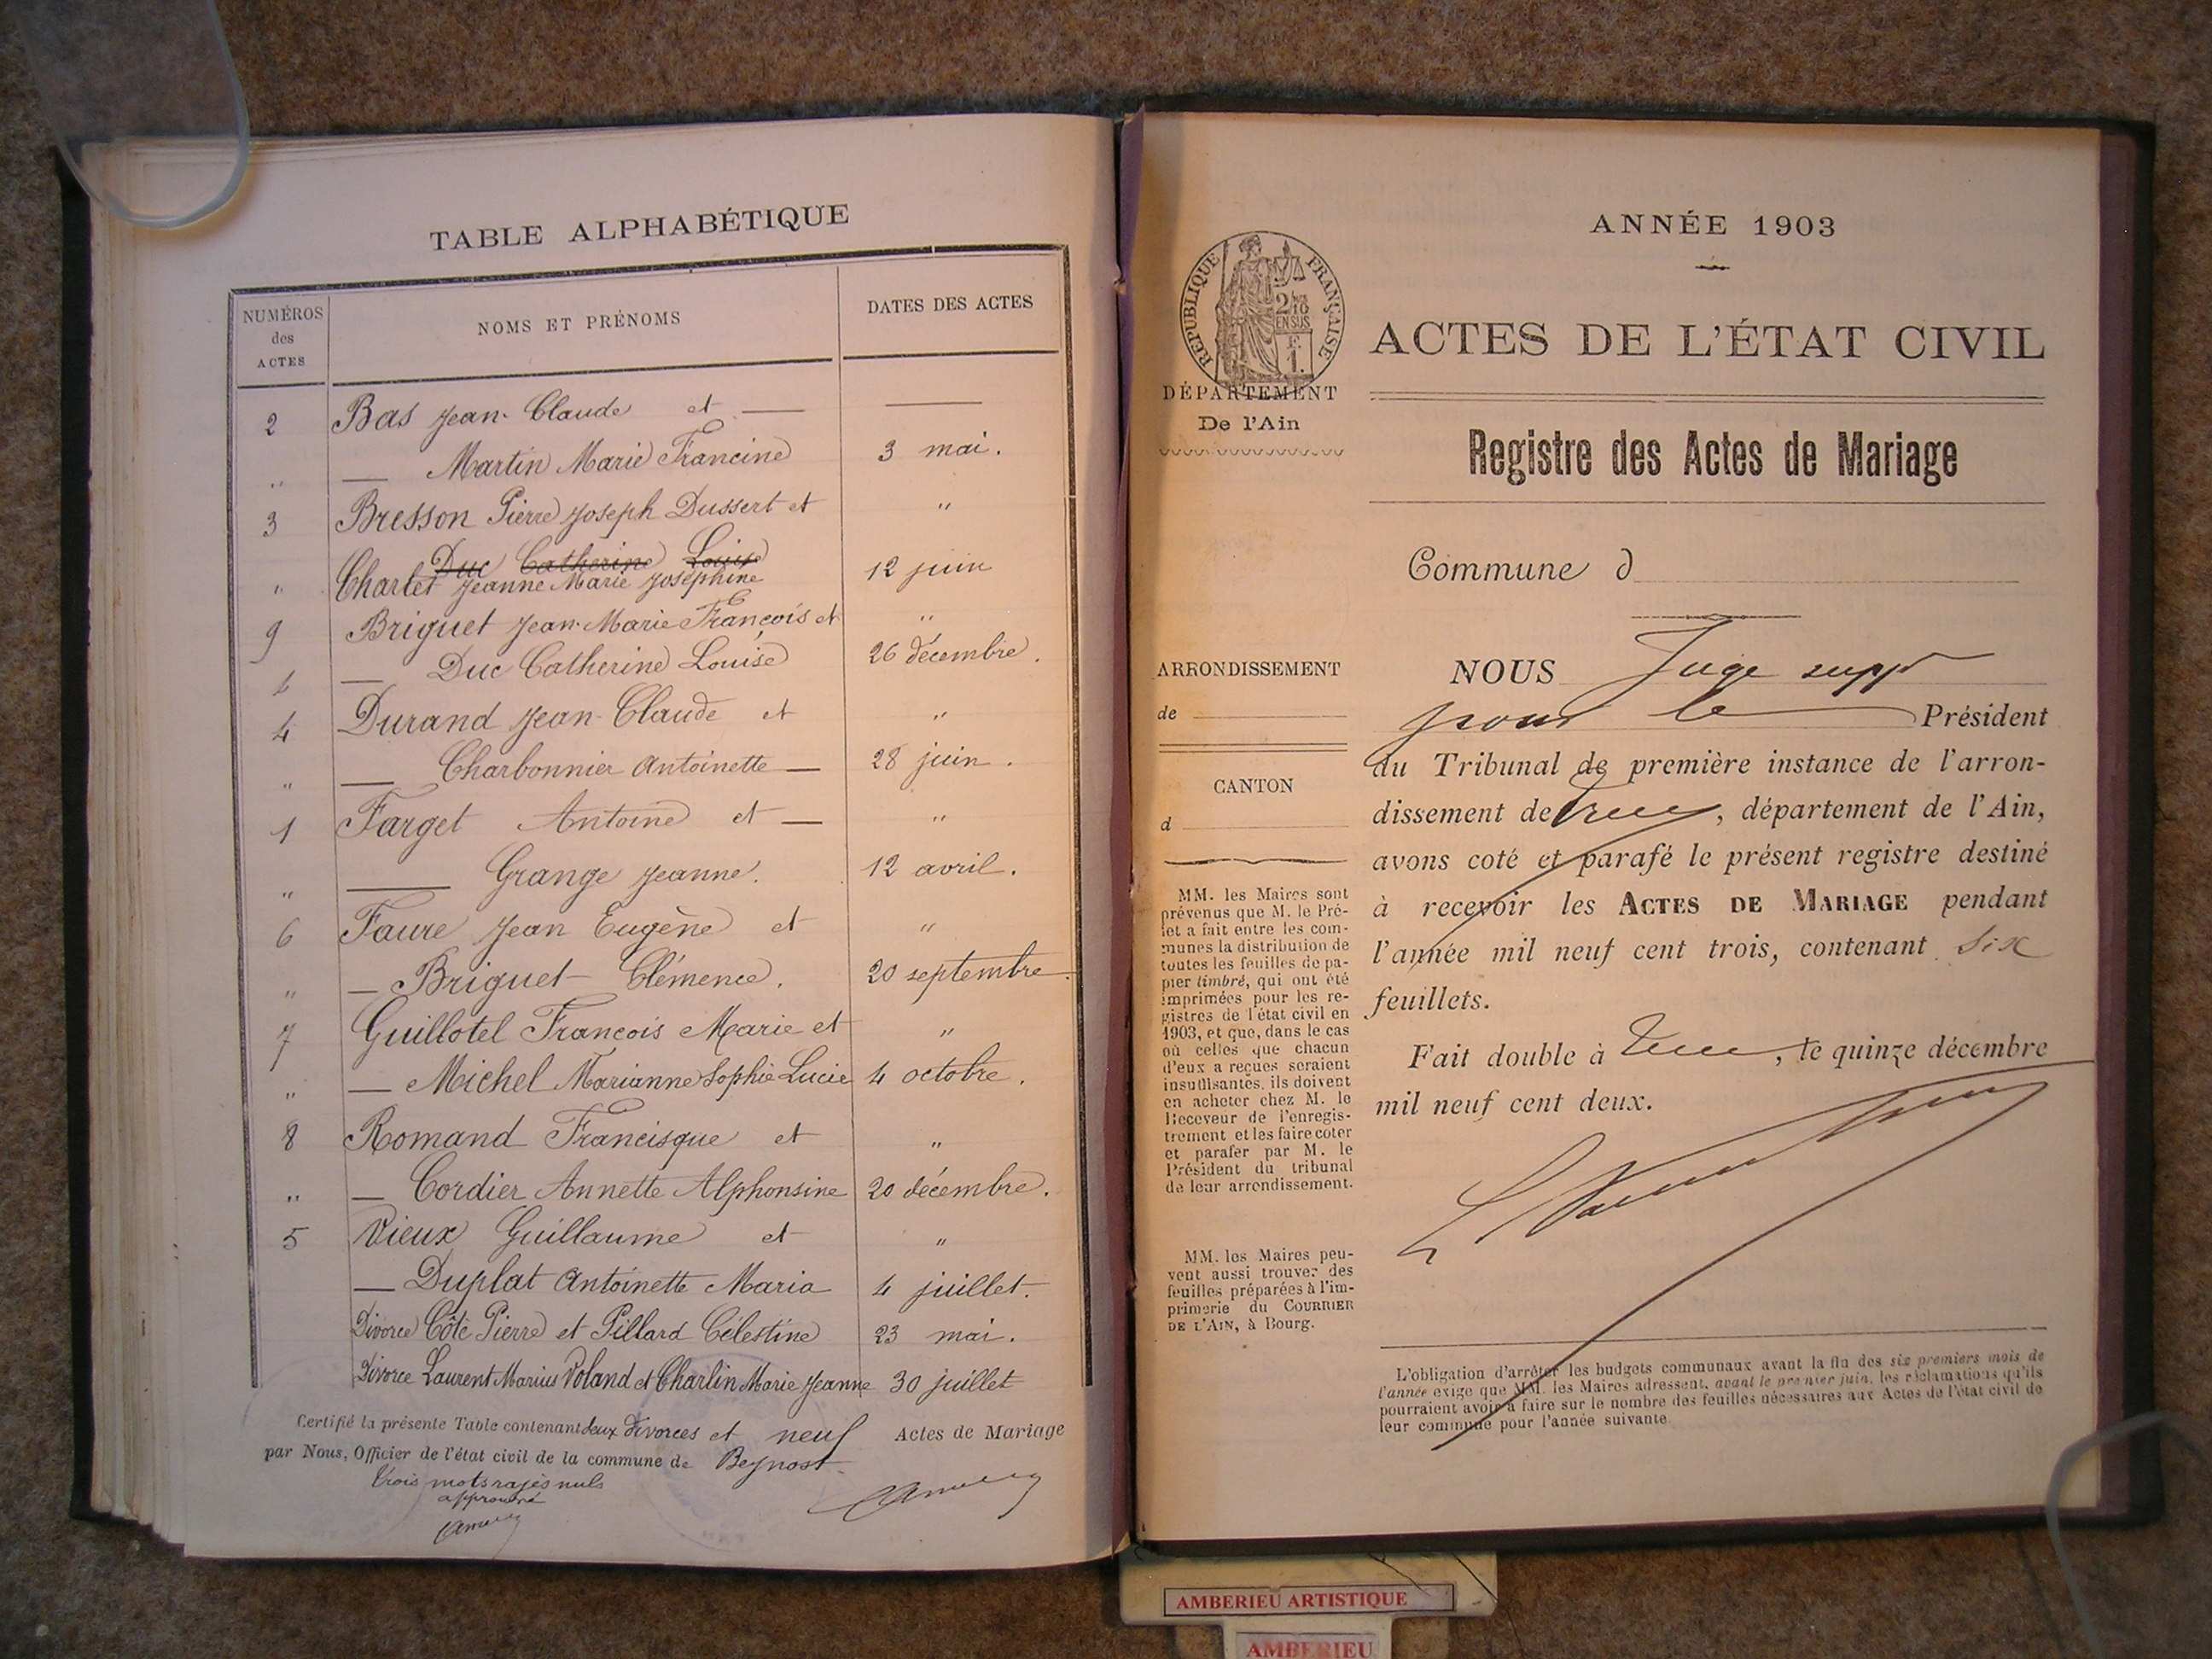 TABLE ALPHABÉTIQUE
NUMÉROS des ACTES
NOMS ET PRÉNOMS
DATES DES ACTES
2 Bas Jean-Claude et — —
" — Martin Marie Francine 3 mai.
3 Bresson Pierre Joseph Dussert et "
Duc Catherine Louise
" Charlet Jeanne Marie Joséphine 12 juin
9 Briguet Jean-Marie François et "
— Duc Catherine Louise 26 décembre.
4 Durand Jean-Claude et "
" — Charbonnier Antoinette — 28 juin.
1 Farget Antoine et — "
" — Grange Jeanne. 12 avril.
6 Faure Jean Eugène et "
" — Briguet Clémence. 20 septembre.
7 Guillotel François Marie et "
" — Michel Marianne Sophie Lucie 4 octobre.
8 Romand Francisque et "
" — Cordier Annette Alphonsine 20 décembre.
5 Vieux Guillaume et "
— Duplat Antoinette Maria 4 juillet.
Divorce Côte Pierre et Pillard Célestine 23 mai.
Divorce Laurent Marius Voland et Charlin Marie Jeanne 30 juillet
Certifié la présente Table contenant deux divorces et neuf Actes de Mariage
par Nous, Officier de l'état civil de la commune de Beynost
trois mots rayés nuls
approuvé
ANNÉE 1903
RÉPUBLIQUE FRANÇAISE
EN SUS
ACTES DE L'ÉTAT CIVIL
DÉPARTEMENT
De l'Ain
Registre des Actes de Mariage
Commune d
ARRONDISSEMENT
de
CANTON
d
MM. les Maires sont
prévenus que M. le Pré-
fet a fait entre les com-
munes la distribution de
toutes les feuilles de pa-
pier timbré, qui ont été
imprimées pour les re-
gistres de l'état civil en
1903, et que, dans le cas
où celles que chacun
d'eux a reçues seraient
insuffisantes, ils doivent
en acheter chez M. le
Receveur de l'enregis-
trement et les faire coter
et parafer par M. le
Président du tribunal
de leur arrondissement.
MM. les Maires peu-
vent aussi trouver des
feuilles préparées à l'im-
primerie du COURRIER
DE L'AIN, à Bourg.
NOUS Juge supp
pour le Président
du Tribunal de première instance de l'arron-
dissement de , département de l'Ain,
avons coté et parafé le présent registre destiné
à recevoir les ACTES DE MARIAGE pendant
l'année mil neuf cent trois, contenant six
feuillets.
Fait double à , le quinze décembre
mil neuf cent deux.
L'obligation d'arrêter les budgets communaux avant la fin des six premiers mois de
l'année exige que MM. les Maires adressent, avant le premier juin, les réclamations qu'ils
pourraient avoir à faire sur le nombre des feuilles nécessaires aux Actes de l'état civil de
leur commune pour l'année suivante
AMBERIEU ARTISTIQUE
AMBERIEU